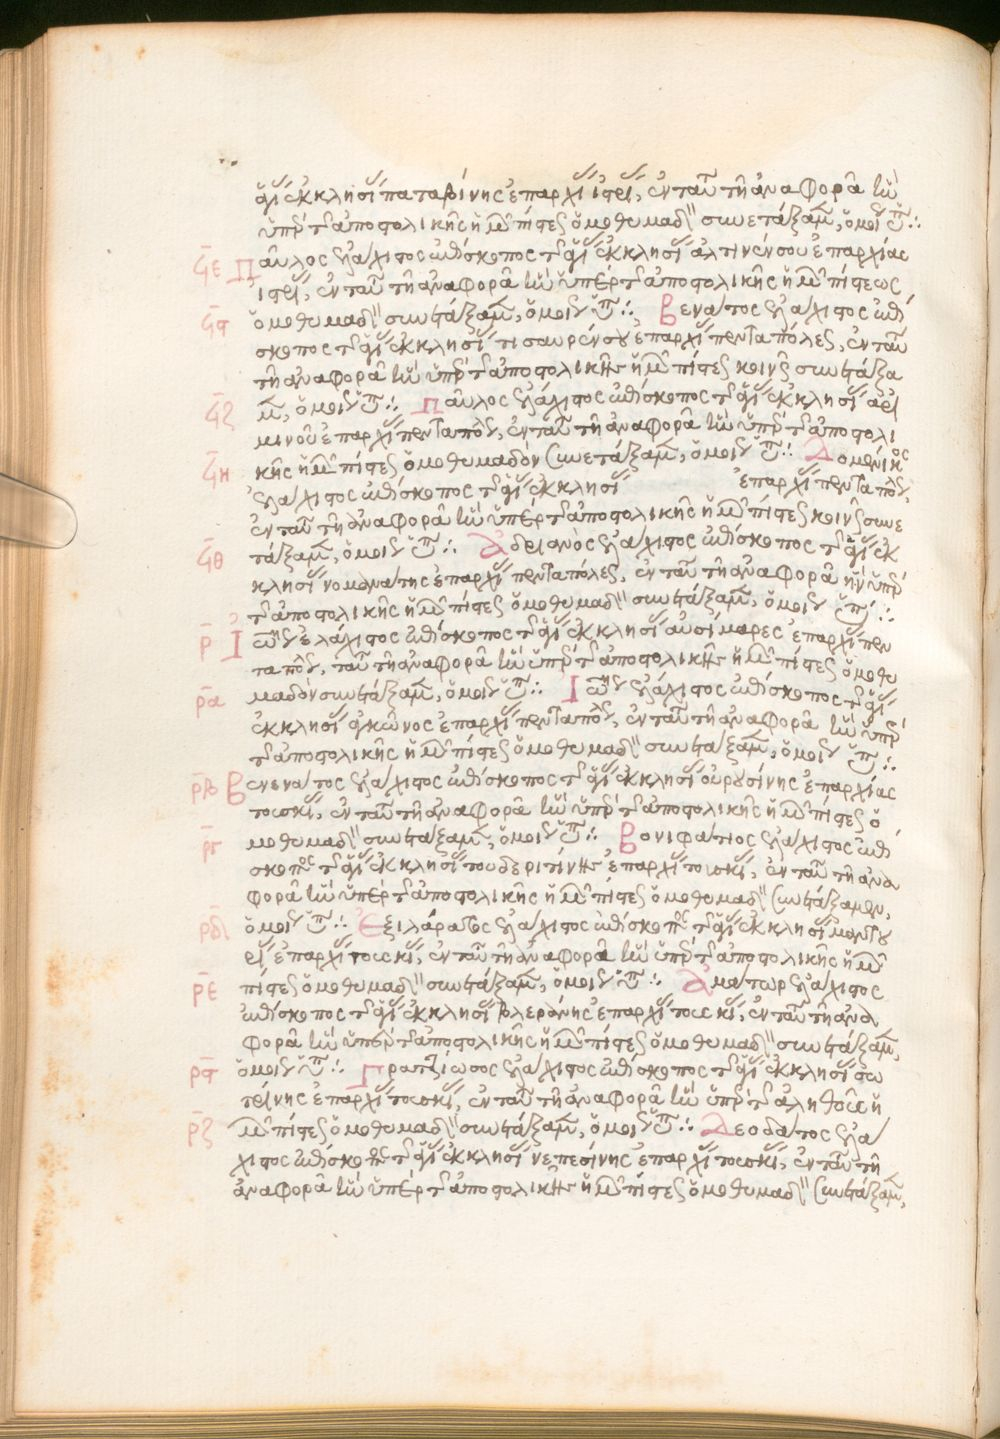 ἁγί ἐκκλησί παταβίνης ἐπαρχί ἰστρί, ἐν ταύτ τῆ ἀναφορᾶ ἣν
ὑπὲρ τ ἀποστολικῆς ἡμ πίστες ὁμοθυμαδ συνετάξαμ, ὁμοί ὑπ :·
ϟε Παῦλος ἐλάχιστος ἐπίσκοπος τ ἁγί ἐκκλησί ἀλτινένσου ἐπαρχίας
ἰστρί, ἐν ταύτ τῆ ἀναφορᾶ ἣν ὑπὲρ τ ἀποστολικῆς ἡμ πίστεως
ϟϛ ὁμοθυμαδ συνετάξαμ, ὁμοί ὑπ :· Βενάτος ἐλάχιστος ἐπί
σκοπος τ ἁγί ἐκκλησί τισαυρένσου ἐπαρχί πενταπόλες, ἐν ταύτ
τῆ ἀναφορᾶ ἣν ὑπὲρ τ ἀποστολικῆς ἡμ πίστες κοινῶς συνετάξα
ϟζ μ, ὁμοί ὑπ :· Παῦλος ἐλάχιστος ἐπίσκοπος τ ἁγί ἐκκλησί ἀρι
μινοῦ ἐπαρχί πενταπόλ, ἐν ταύτ τῆ ἀναφορᾶ ἣν ὑπὲρ τ ἀποστολι
ϟη κῆς ἡμ πίστες ὁμοθυμαδὸν συνετάξαμ, ὁμοί ὑπ :· Δομένικος
ἐλάχιστος ἐπίσκοπος τ ἁγί ἐκκλησί ἐπαρχί πενταπόλ,
ἐν ταύτ τῆ ἀναφορᾶ ἣν ὑπὲρ τ ἀποστολικῆς ἡμ πίστες κοινῶς συνε
ϟθ τάξαμ, ὁμοί ὑπ :· Ἀδριανὸς ἐλάχιστος ἐπίσκοπος τ ἁγί ἐκ
κλησί νομανάτης ἐπαρχί πενταπόλες, ἐν ταύτ τῆ ἀναφορᾶ ἣν ὑπὲρ
τ ἀποστολικῆς ἡμ πίστες ὁμοθυμαδ συνετάξαμ, ὁμοί ὑπ :·
ρ Ἰωάνν ἐλάχιστος ἐπίσκοπος τ ἁγί ἐκκλησί αὐσίμαρες ἐπαρχί πεν
ταπόλ, ταύτ τῆ ἀναφορᾶ ἣν ὑπὲρ τ ἀποστολικῆς ἡμ πίστες ὁμοθυ
ρα μαδὸν συνετάξαμ, ὁμοί ὑπ :· Ἰωάνν ἐλάχιστος ἐπίσκοπος τ ἁγί
ἐκκλησί ἀκῶνος ἐπαρχί πενταπόλ, ἐν ταύτ τῆ ἀναφορᾶ ἣν ὑπὲρ
τ ἀποστολικῆς ἡμ πίστες ὁμοθυμαδ συνετάξαμ, ὁμοί ὑπ :·
ρβ Βενενάτος ἐλάχιστος ἐπίσκοπος τ ἁγί ἐκκλησί οὑρυσίνης ἐπαρχίας
τουσκί, ἐν ταύτ τῆ ἀναφορᾶ ἣν ὑπὲρ τ ἀποστολικῆς ἡμ πίστες ὁ
ργ μοθυμαδ συνετάξαμ, ὁμοί ὑπ :· Βονιφάτιος ἐλάχιστος ἐπί
σκοπος τ ἁγί ἐκκλησί τουδεριτίνης ἐπαρχί τουσκί, ἐν ταύτ τῆ ἀνα
φορᾶ ἣν ὑπὲρ τ ἀποστολικῆς ἡμ πίστες ὁμοθυμαδ συνετάξαμεν,
ρδ ὁμοί ὑπ :· Ἐξιλάρατος ἐλάχιστος ἐπίσκοπος τ ἁγί ἐκκλησί μεντου
ρί ἐπαρχί τουσκί, ἐν ταύτ τῆ ἀναφορᾶ ἣν ὑπὲρ τ ἀποστολικῆς ἡμ
ρε πίστες ὁμοθυμαδ συνετάξαμ, ὁμοί ὑπ :· Ἀμάτωρ ἐλάχιστος
ἐπίσκοπος τ ἁγί ἐκκλησί βλεράνης ἐπαρχί τουσκί, ἐν ταύτ τῆ ἀνα
φορᾶ ἣν ὑπὲρ τ ἀποστολικῆς ἡμ πίστες ὁμοθυμαδ συνετάξαμ,
ρϛ ὁμοί ὑπ :· Πραετζιώσος ἐλάχιστος ἐπίσκοπος τ ἁγί ἐκκλησί σω
τρίνης ἐπαρχί τουσκί, ἐν ταύτ τῆ ἀναφορᾶ ἣν ὑπὲρ τ ἀληθοῦς ἡ
ρζ μ πίστες ὁμοθυμαδ συνετάξαμ, ὁμοί ὑπ :· Δεοδάτος ἐλά
χιστος ἐπίσκοπος τ ἁγί ἐκκλησί νεπεσίνης ἐπαρχί τουσκί, ἐν ταύτ τῆ
ἀναφορᾶ ἣν ὑπὲρ τ ἀποστολικῆς ἡμ πίστες ὁμοθυμαδ συνετάξαμ,